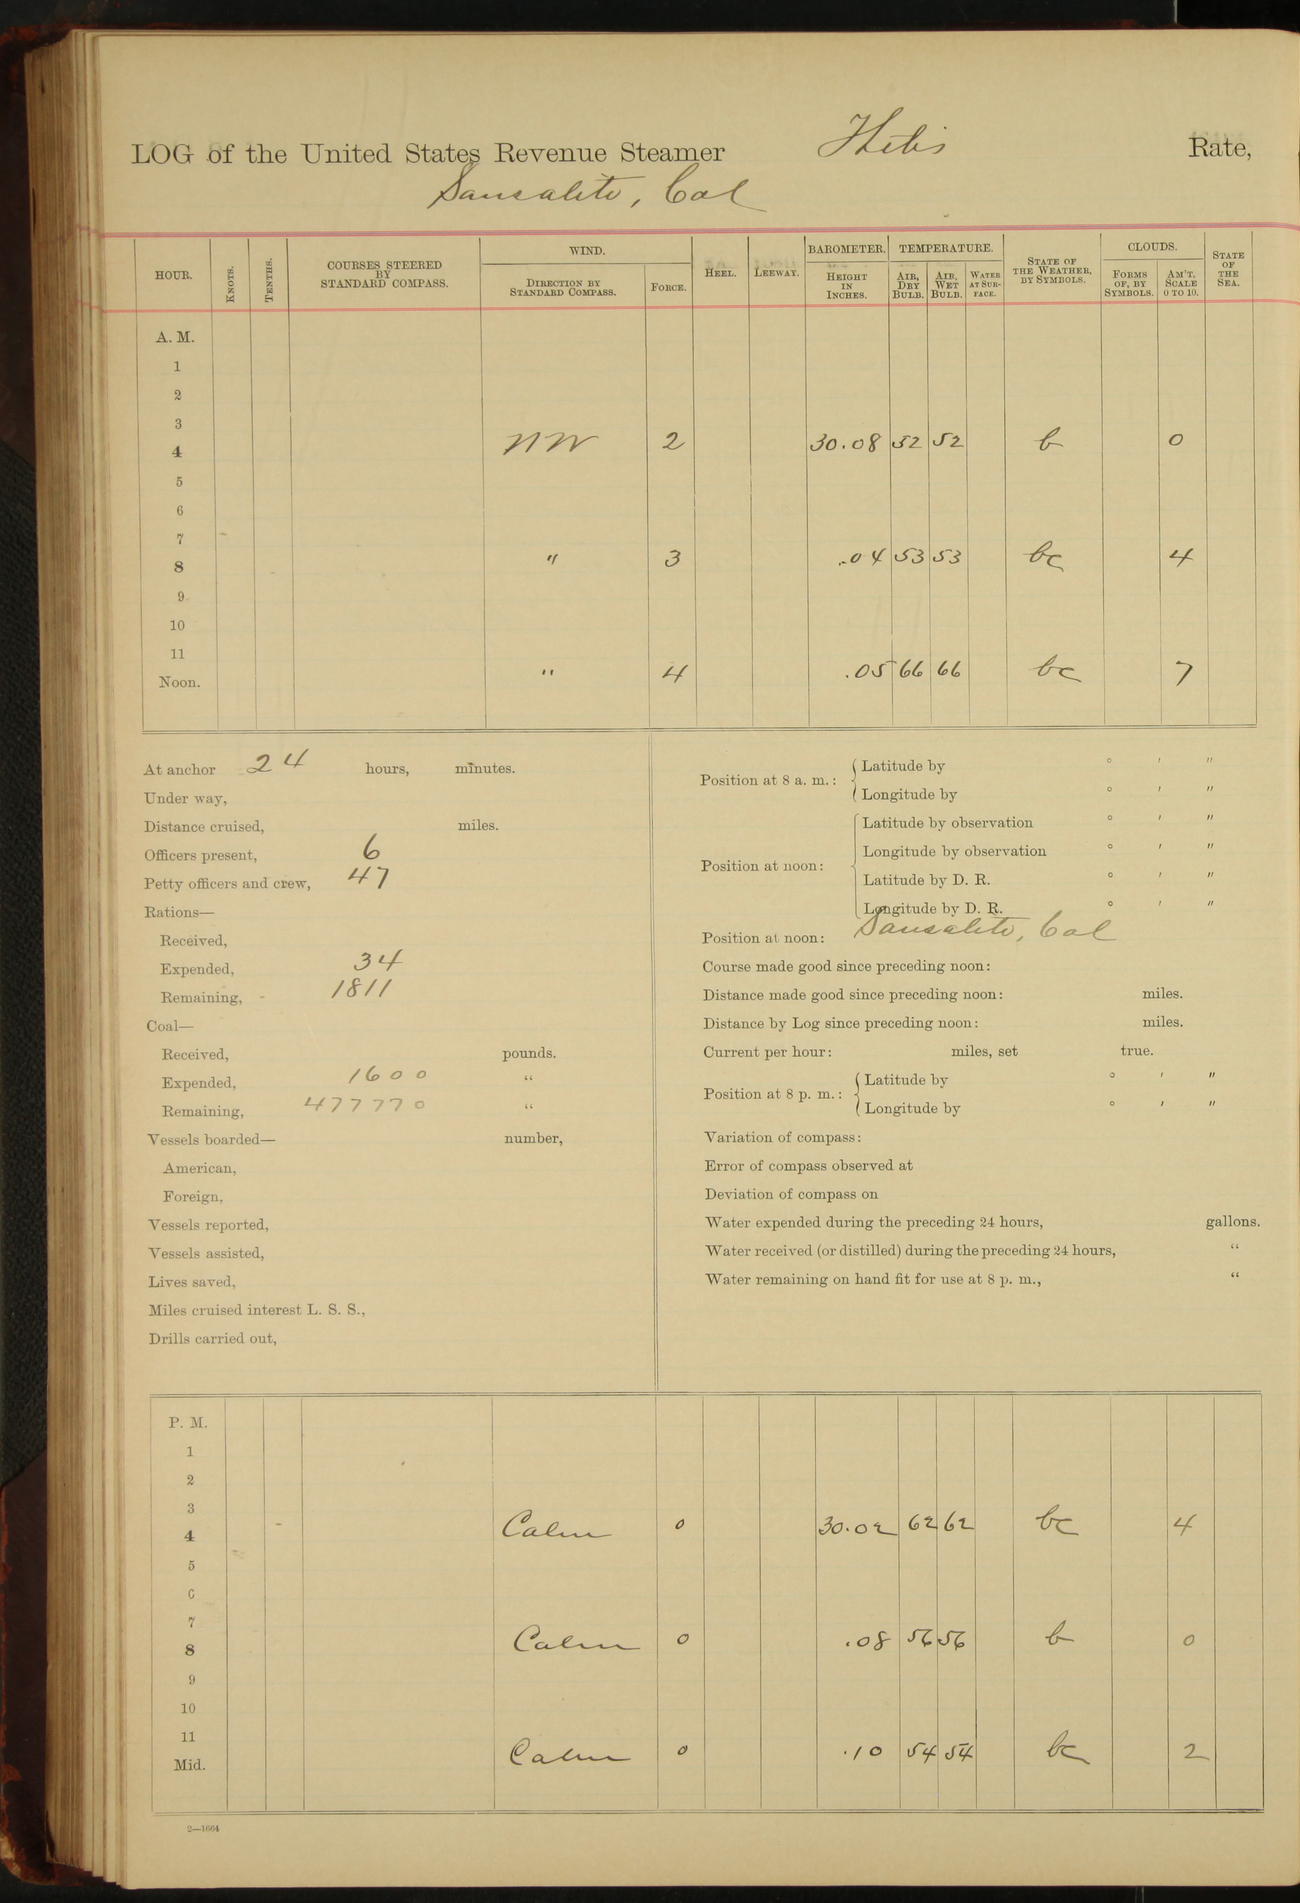 LOG of the United States Revenue Steamer Thetis Rate,
Sausalito, Cal
HOUR. KNOTS. TENTHS. COURSES STEERED BY STANDARD COMPASS. WIND. DIRECTION BY STANDARD COMPASS. FORCE. HEEL. LEEWAY. BAROMETER. HEIGHT IN INCHES. TEMPERATURE. AIR, DRY BULB. AIR, WET BULB. WATER AT SURFACE. STATE OF THE WEATHER, BY SYMBOLS. CLOUDS. FORMS OF, BY SYMBOLS. AM'T, SCALE 0 TO 10. STATE OF THE SEA.
A. M.
1
2
3
4 NW 2 30.08 52 52 b 0
5
6
7
8 " 3 .04 53 53 bc 4
9
10
11
Noon. " 4 .05 66 66 bc 7
At anchor 24 hours, minutes.
Under way,
Distance cruised, miles.
Officers present, 6
Petty officers and crew, 47
Rations—
Received,
Expended, 34
Remaining, 1811
Coal—
Received, pounds.
Expended, 1600 "
Remaining, 477770 "
Vessels boarded— number,
American,
Foreign,
Vessels reported,
Vessels assisted,
Lives saved,
Miles cruised interest L. S. S.,
Drills carried out,
Position at 8 a. m.: Latitude by ° ′ ″
Longitude by ° ′ ″
Position at noon: Latitude by observation ° ′ ″
Longitude by observation ° ′ ″
Latitude by D. R. ° ′ ″
Longitude by D. R. ° ′ ″
Position at noon: Sausalito, Cal
Course made good since preceding noon:
Distance made good since preceding noon: miles.
Distance by Log since preceding noon: miles.
Current per hour: miles, set true.
Position at 8 p. m.: Latitude by ° ′ ″
Longitude by ° ′ ″
Variation of compass:
Error of compass observed at
Deviation of compass on
Water expended during the preceding 24 hours, gallons.
Water received (or distilled) during the preceding 24 hours, "
Water remaining on hand fit for use at 8 p. m., "
P. M.
1
2
3
4 Calm 0 30.02 62 62 bc 4
5
6
7
8 Calm 0 .08 56 56 b 0
9
10
11
Mid. Calm 0 .10 54 54 bc 2
2—1664